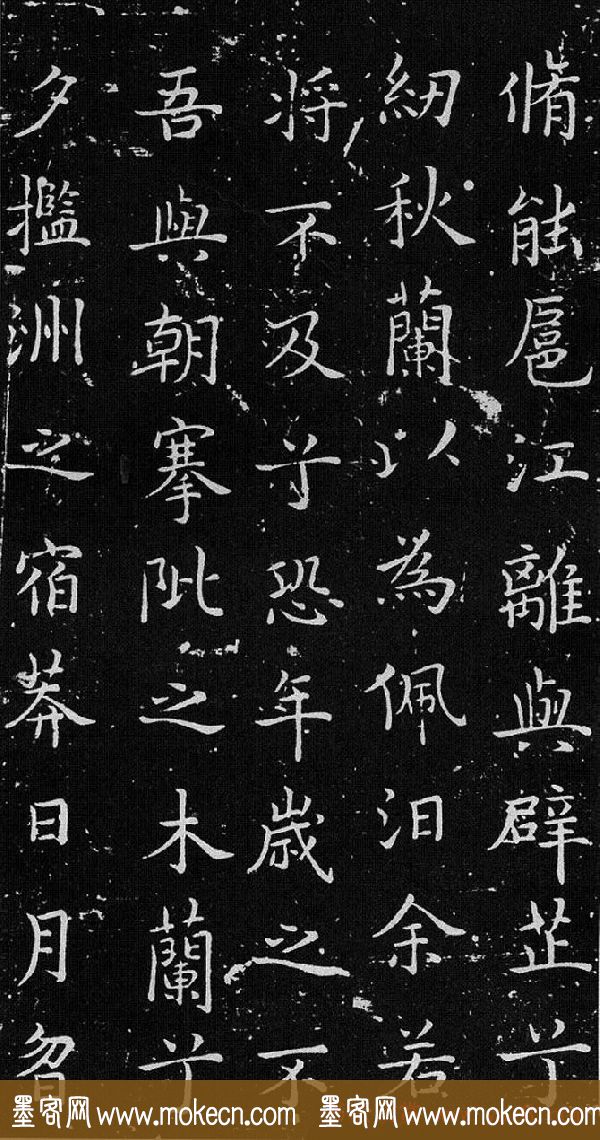 脩能扈江離與辟芷兮
紉秋蘭以為佩汨余若
将不及兮恐年歲之不
吾與朝搴阰之木蘭兮
夕擥洲之宿莽日月曶
墨客网 www.mokecn.com 墨客网 www.mokecn.com